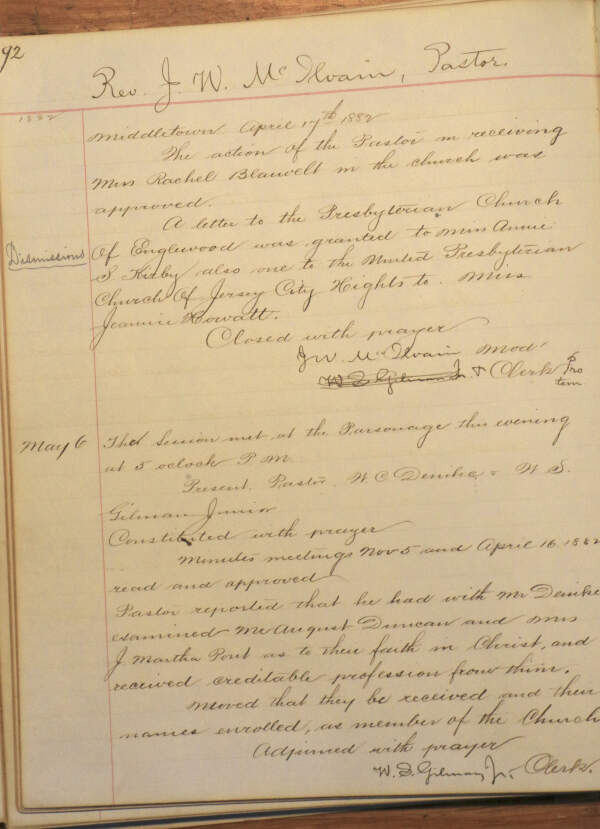 92
Rev. J. W. McIlvain, Pastor.
1882
Middletown April 17th 1882
The action of the Pastor in receiving
Miss Rachel Blauvelt in the church was
approved.
A letter to the Presbyterian Church
Dismissions
Of Englewood was granted to Miss Annie
S Kirby, also one to the United Presbyterian
Church Of Jersey City Heights to. Miss
Jeannie Howatt.
Closed with prayer
J W. McIlvain Mod'
W. S. Gilman Jr. & Clerk Pro
tem.
May 6
The Session met at the Parsonage this evening
at 5 oclock P M
Present. Pastor. W C Denike & W S.
Gilman Junior
Constituted with prayer
Minutes meetings Nov 5 and April 16 1882
read and approved
Pastor reported that he had with Mr Denike
examined Mr August Duncan and Mrs
J Martha Pout as to their faith in Christ, and
received creditable profession from thim.
Moved that they be received and their
names enrolled, as member of the Church
Adjurned with prayer
W. S. Gilman, Jr. Clerk.